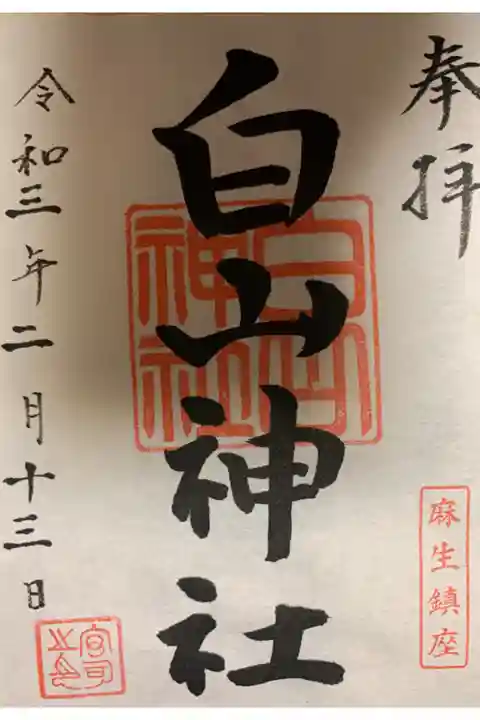 奉拝
白山神社
白山神社
麻生鎮座
令和三年二月十三日
宮司之印